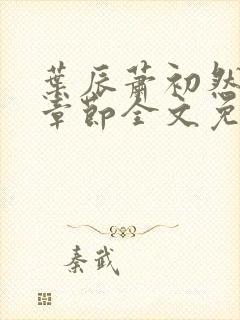 葉辰蕭初然
章節全文免
秦武